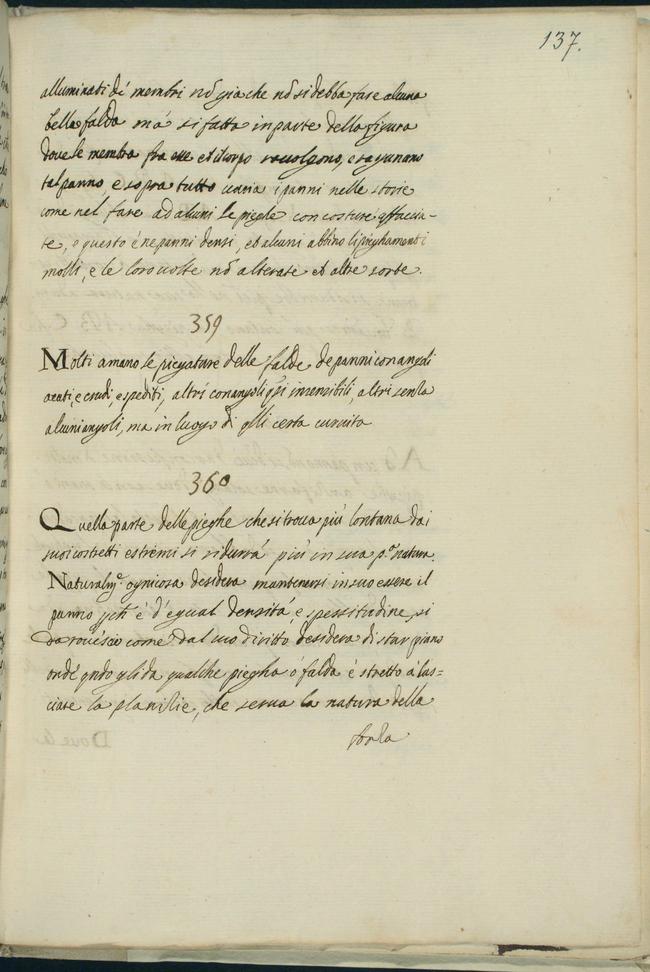 137.
alluminati de' membri nō gia che nō si debba fare alcuna
bella falda mà si fatta in parte della figura
dove le membra fra esse et il corpo racolgono, e ragunano
tal panno, e sopra tutto varia i panni nelle storie
come nel fare ad alcuni le pieghe con costure affaccia-
te, e questo è ne panni densi, et alcuni abbino li pieghamenti
molli, e le loro volte nō alterate et altre sorte.
359
Molti amano le piegature delle falde de panni con angoli
acuti, e crudi, e spediti, altri con angoli qsi insensibili, altri senza
alcuni angoli, ma in luogo di qlli certa curvita
360
Quella parte delle pieghe che si trova più lontana dai
suoi costretti estremi si ridurrà più in sua pa. natura.
Naturalmte. ogni cosa desidera mantenersi in suo essere il
panno è d'egual densità, e spessitudine, si
da rovescio come dal suo diritto desidera di star piano
onde qndo gli da qualche piegha ò falda è stretto à las=
ciare la planitie, che serva la natura della
forza